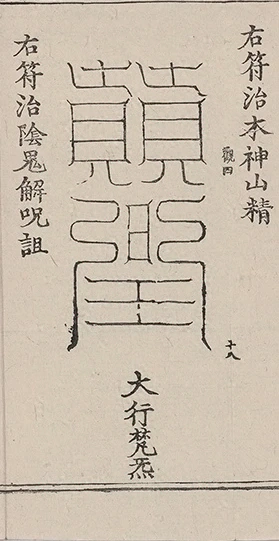 右符治木神山精
觀四
十八
大行梵炁
右符治陰鬼解呪詛